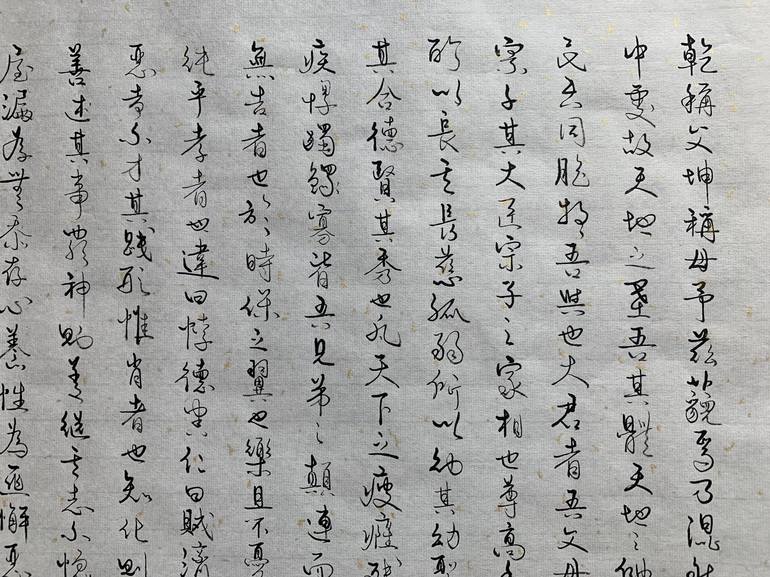 乾稱父坤稱母予茲藐焉乃混然
中處故天地之塞吾其體天地之帥
民吾同胞物吾與也大君者吾父母
宗子其大臣宗子之家相也尊高年
所以長其長慈孤弱所以幼其幼聖
其合德賢其秀也凡天下之疲癃殘
疾惸獨鰥寡皆吾兄弟之顛連而
無告者也於時保之翼也樂且不憂
純乎孝者也違曰悖德害仁曰賊濟
惡者不才其踐形惟肖者也知化則
善述其事窮神則善繼其志不愧
屋漏為無忝存心養性為匪懈惡